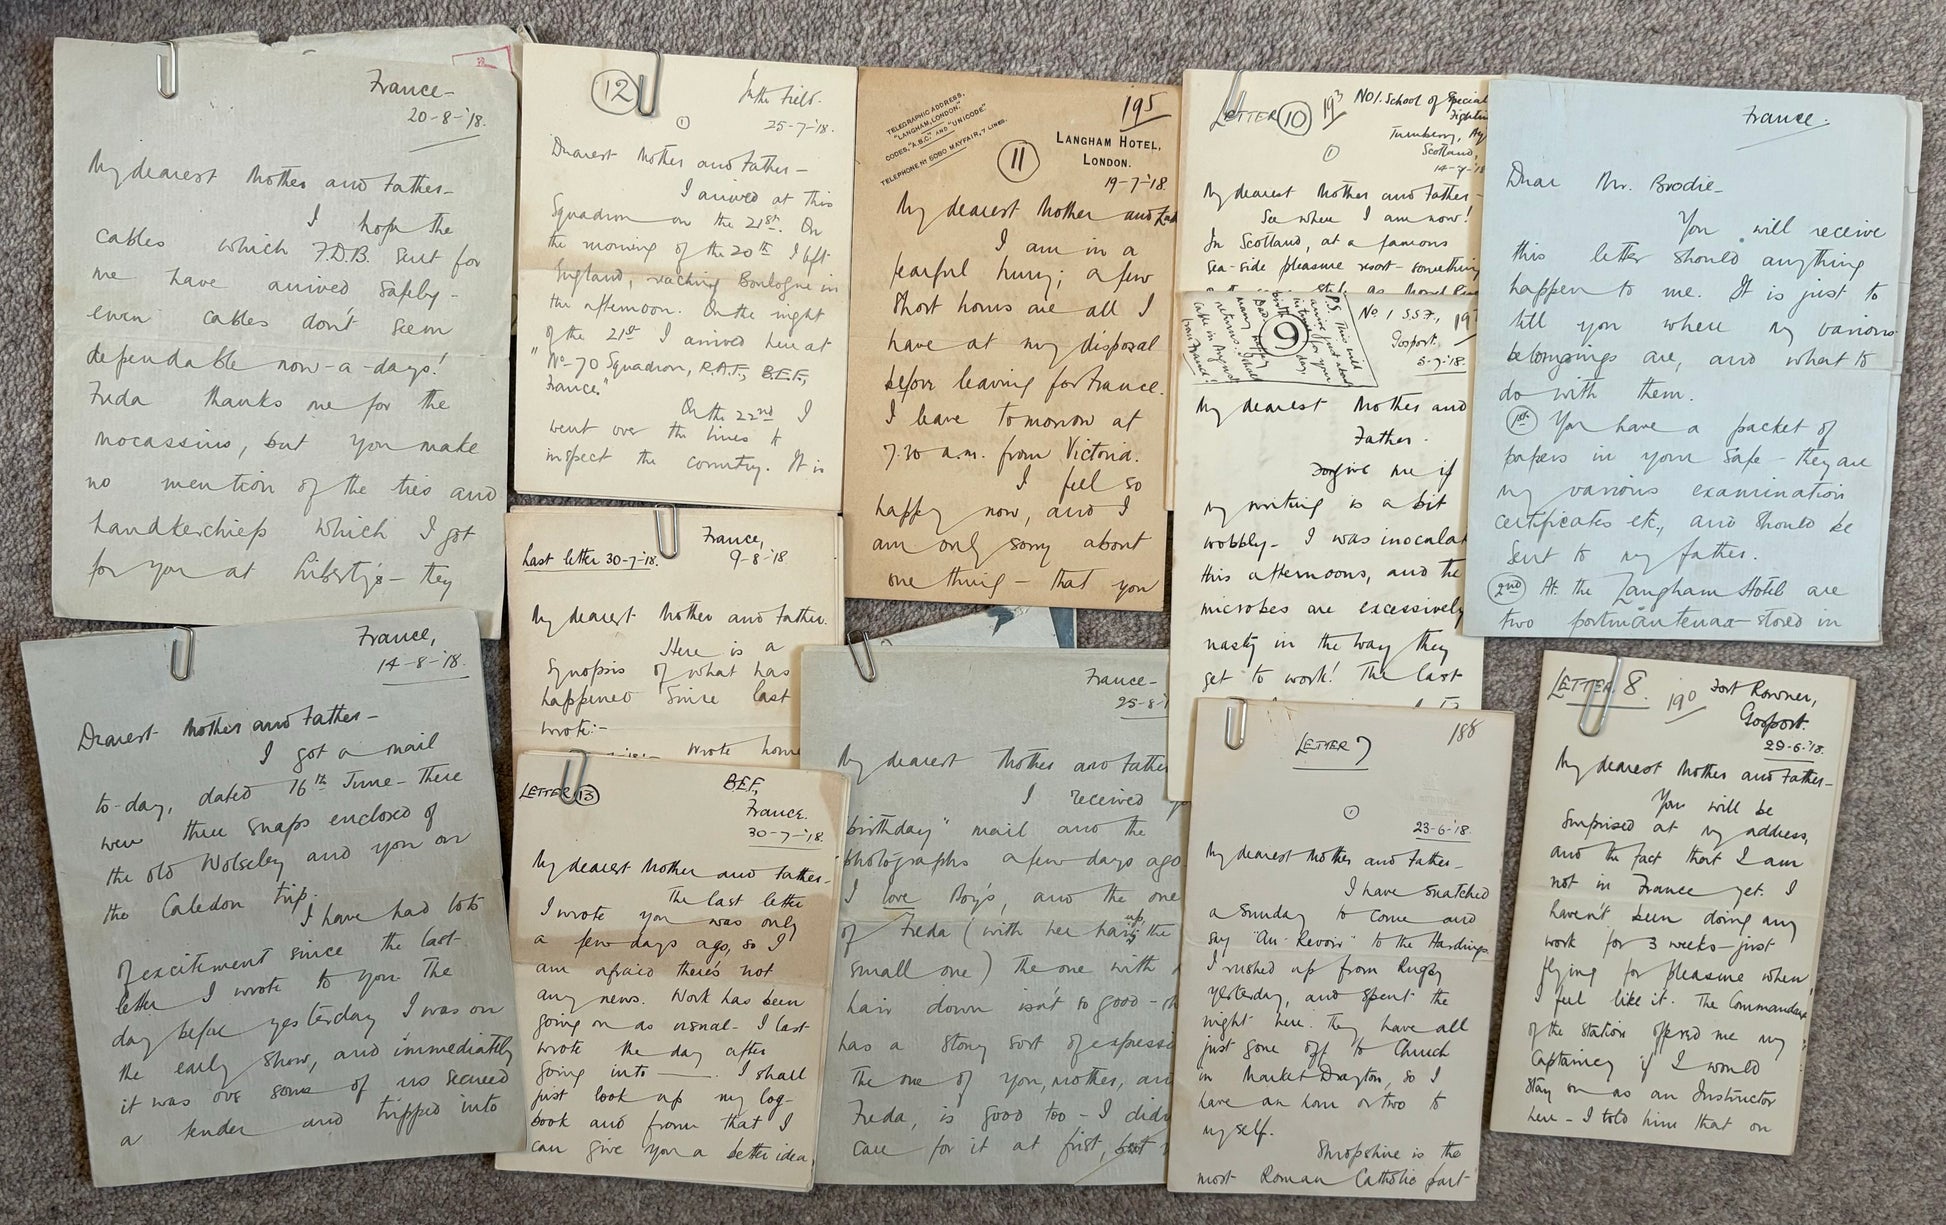 France-
20-8-'18.
My dearest Mother and Father-
I hope the
cables which F.D.B. sent for
me have arrived safely-
even cables don't seem
dependable now-a-days!
Freda thanks me for the
mocassins, but you make
no mention of the ties and
handkerchiefs which I got
for you at Liberty's- they
12
In the Field.
1
25-7-'18.
Dearest Mother and Father-
I arrived at this
Squadron on the 21st. On
the morning of the 20th I left
England, reaching Boulogne in
the afternoon. On the night
of the 21st I arrived here at
"No-70 Squadron, R.A.F., B.E.F,
France."
On the 22nd I
went over the lines to
inspect the country. It is
TELEGRAPHIC ADDRESS,
"LANGHAM, LONDON."
CODES, "A.B.C." AND "UNICODE"
TELEPHONE No 5080 MAYFAIR, 7 LINES.
195
11
LANGHAM HOTEL,
LONDON.
19-7-'18.
My dearest Mother and
I am in a
fearful hurry; a few
short hours are all I
have at my disposal
before leaving for France.
I leave tomorrow at
7.30 a.m. from Victoria.
I feel so
happy now, and I
am only sorry about
one thing - that you
LETTER 10
193
No 1. School of Special
Turnberry, Ay
Scotland,
1
14-7-'18
My dearest Mother and Father-
See where I am now!
In Scotland, at a famous
sea-side pleasure resort- something
P.S. This will
arrive just about
in time for your
birthday
many happy
returns. I shall
cable in August
from France!
9
No 1 S.S.F.,
Gosport,
5-7-'18.
My dearest Mother and
Father.
Forgive me if
my writing is a bit
wobbly- I was inocula
this afternoon, and the
microbes are excessively
nasty in the way they
get to work! The last
France.
Dear Mr. Brodie-
You will receive
this letter should anything
happen to me. It is just to
tell you where my various
belongings are, and what to
do with them.
1st You have a packet of
papers in your safe - they are
my various examination
certificates etc., and should be
sent to my father.
2nd At the Langham Hotel are
two portmanteaux- stored in
France,
14-8-'18.
Dearest Mother and Father-
I got a mail
to-day, dated 16th June- there
were three snaps enclosed of
the old Wolseley and you on
the Caledon trip.
I have had lots
of excitement since the last
letter I wrote to you. The
day before yesterday I was on
the early show, and immediately
it was over some of us secured
a tender and tripped into
Last letter 30-7-'18.
France,
9-8-'18
My dearest Mother and Father.
Here is a
synopsis of what has
happened since last
wrote:-
wrote home
LETTER 13
B.E.F,
France.
30-7-'18.
My dearest Mother and Father-
The last letter
I wrote you was only
a few days ago, so I
am afraid there's not
any news. Work has been
going on as usual- I last
wrote the day after
going into ——. I shall
just look up my log-
book and from that I
can give you a better idea
France-
25-8-1
My dearest Mother and Father
I received
birthday" mail and the
photographs a few days ago
I love Boy's, and the one
of Freda (with her hair up, the
small one) the one with
hair down isn't so good-
has a stony sort of expressi
The one of you, mother, an
Freda, is good too- I didn
care for it at first, but
LETTER 7
188
1
23-6-'18.
My dearest Mother and Father-
I have snatched
a Sunday to come and
say "Au Revoir" to the Hardings.
I rushed up from Rugby
yesterday, and spent the
night here. They have all
just gone off to Church
in Market Drayton, so I
have an hour or two to
myself.
Shropshire is the
most Roman Catholic part
LETTER 8.
190
Fort Rowner,
Gosport.
29-6-'18.
My dearest Mother and Father-
You will be
surprised at my address,
and the fact that I am
not in France yet. I
haven't been doing any
work for 3 weeks- just
flying for pleasure when
I feel like it. The Commander
of the station offered me my
Captaincy if I would
stay on as an Instructor
here- I told him that on